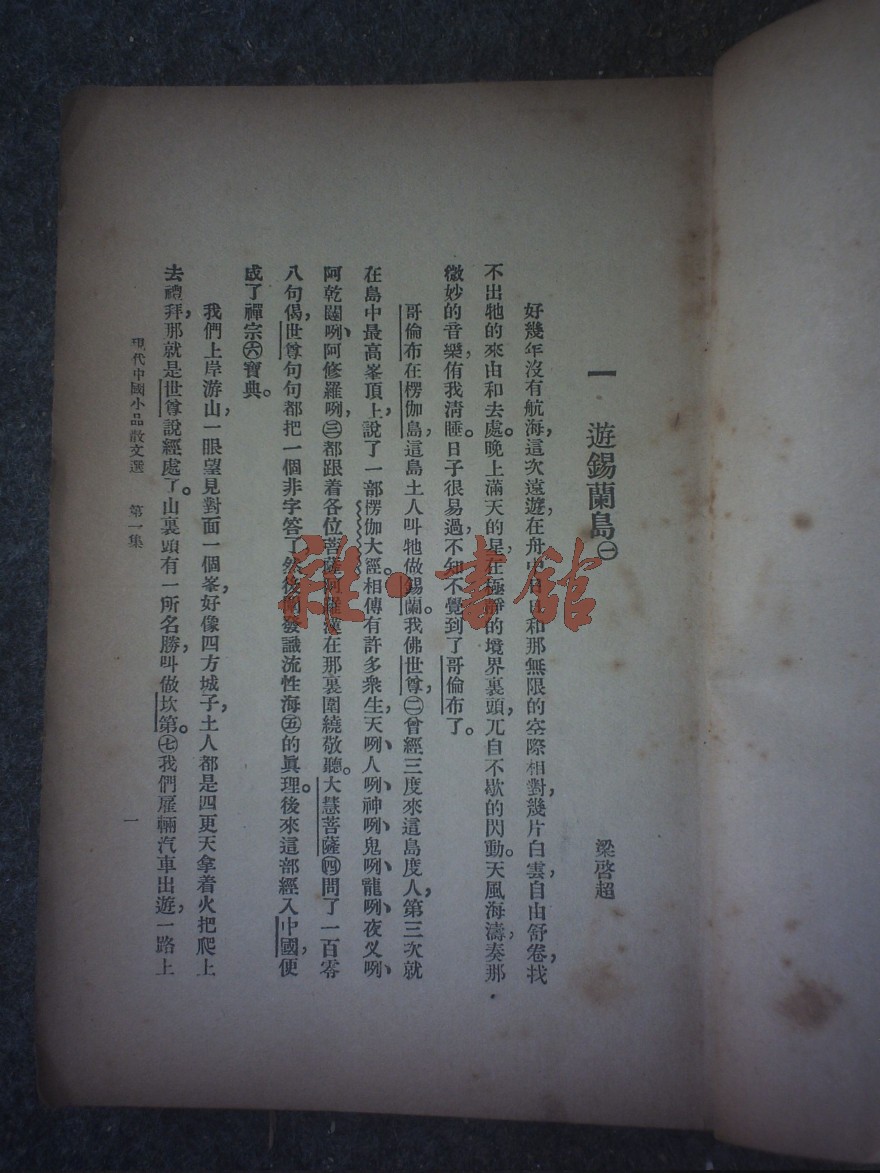 一　遊錫蘭島㊀
梁啓超
好幾年沒有航海，這次遠遊，在舟中日日和那無限的空際相對，幾片白雲自由舒卷，找
不出牠的來由和去處。晚上滿天的星，在極靜的境界裏頭，兀自不歇的閃動。天風海濤，奏那
微妙的音樂，侑我清睡。日子很易過，不知不覺到了哥倫布了。
哥倫布在楞伽島，這島土人叫牠做錫蘭。我佛世尊，㊁曾經三度來這島度人，第三次就
在島中最高峯頂上，說了一部楞伽大經。相傳有許多衆生，天咧、人咧、神咧、鬼咧、龍咧、夜叉咧、
阿乾闥咧、阿修羅咧，㊂都跟着各位菩薩阿羅漢在那裏圍繞敬聽。大慧菩薩㊃問了一百零
八句偈，世尊句句都把一個非字答了，然後闡發識流性海㊄的眞理。後來這部經入中國，便
成了禪宗㊅寶典。
我們上岸游山，一眼望見對面一個峯，好像四方城子，土人都是四更天拿着火把爬上
去禮拜，那就是世尊說經處了。山裏頭有一所名勝，叫做坎第。㊆我們雇輛汽車出遊，一路上
現代中國小品散文選　第一集
一
雜·書館